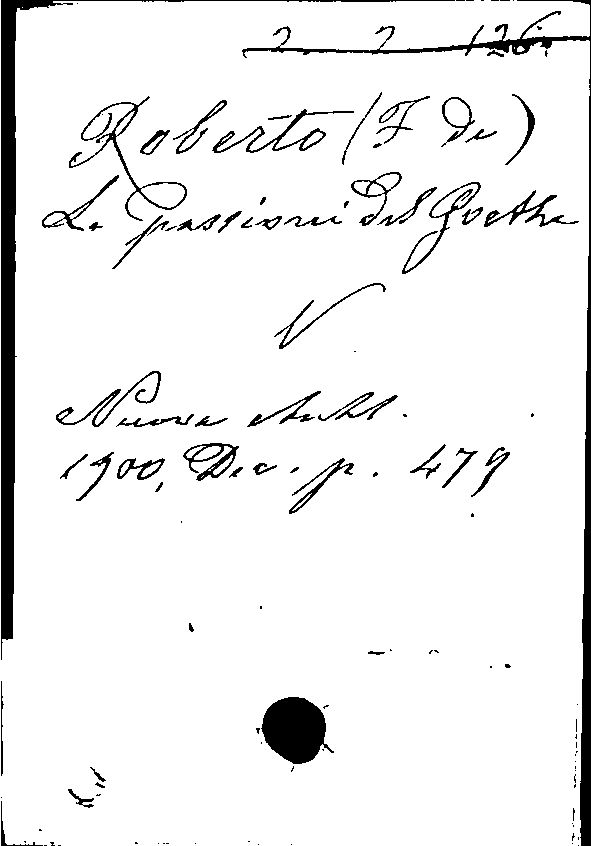 2. 2 126.
Roberto (F de)
Le passioni del Goethe
V
Nuova Antol.
1900, Dec. p. 479